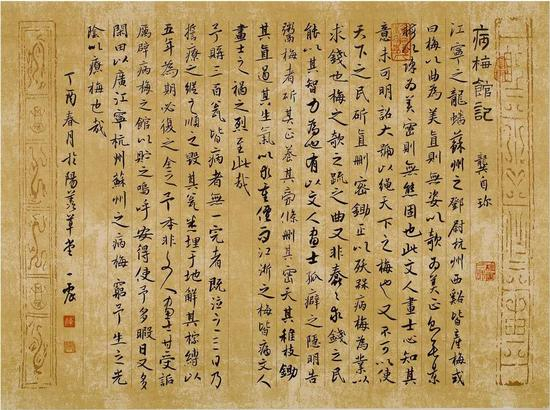 病梅館記 龔自珍
江寧之龍蟠蘇州之鄧尉杭州西谿皆產梅或
曰梅以曲為美直則無姿以欹為美正則無景
梅以疎為美密則無態固也此文人畫士心知其
意未可明詔大號以繩天下之梅也又不可以使
天下之民斫直刪密鋤正以殀梅病梅為業以
求錢也梅之欹之疏之曲又非蠢蠢求錢之民
能以其智力為也有以文人畫士孤癖之隱明告
鬻梅者斫其正養其旁條刪其密夭其稚枝鋤
其直遏其生氣以求重價而江浙之梅皆病文人
畫士之禍之烈至此哉
予購三百盆皆病者無一完者既泣之三日乃
誓療之縱之順之毀其盆悉埋于地解其棕縛以
五年為期必復之全之予本非文人畫士甘受詬
厲辟病梅之館以貯之嗚呼安得使予多暇日又多
閑田以廣江寧杭州蘇州之病梅窮予生之光
陰以療梅也哉
丁酉春月於陽羨草堂一